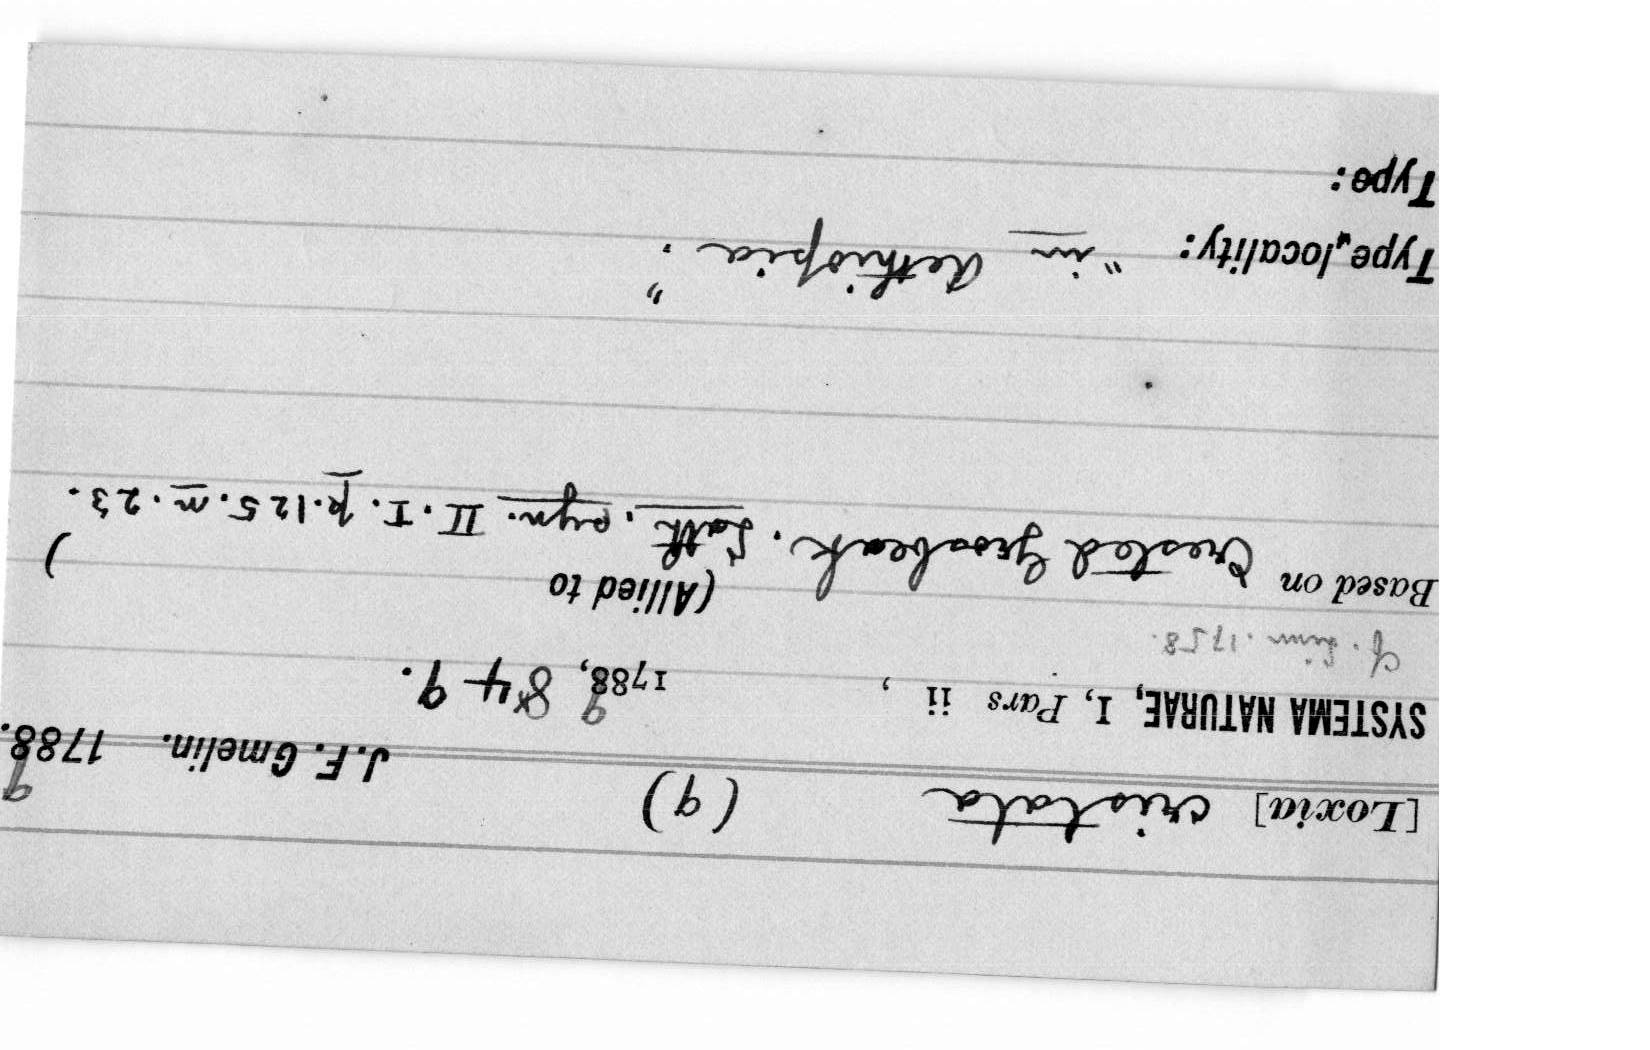 [Loxia] cristata (9) J.F. Gmelin. 1788.
9
SYSTEMA NATURAE, I, Pars ii, 1788, 849.
9
cf. Linn. 1758.
(Allied to )
Based on Crested Grosbeak. Lath. syn. II. I. p. 125. n. 23.
Type locality: "in Aethiopia".
Type: